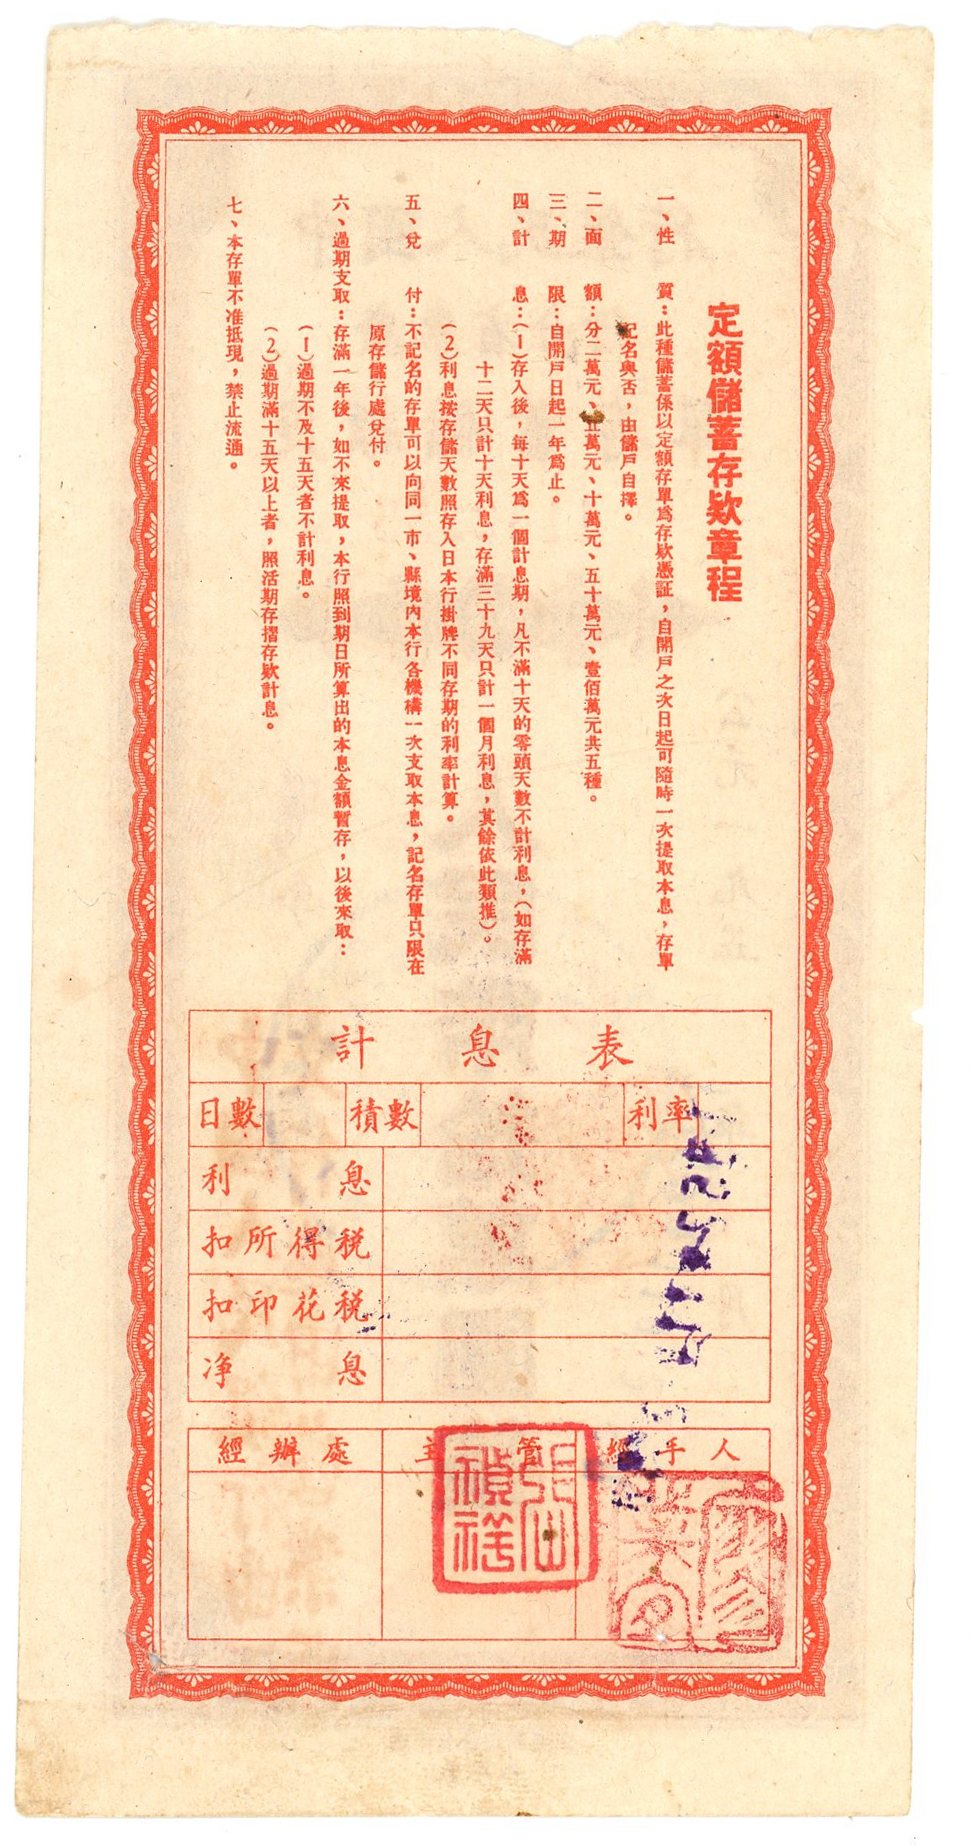 定額儲蓄存欵章程
一、性　質：此種儲蓄係以定額存單爲存欵憑証，自開戶之次日起可隨時一次提取本息，存單
記名與否，由儲戶自擇。
二、面　額：分二萬元、五萬元、十萬元、五十萬元、壹佰萬元共五種。
三、期　限：自開戶日起一年爲止。
四、計　息：(1)存入後，每十天爲一個計息期，凡不滿十天的零頭天數不計利息，(如存滿
十二天只計十天利息，存滿三十九天只計一個月利息，其餘依此類推)。
(2)利息按存儲天數照存入日本行掛牌不同存期的利率計算。
五、兌　付：不記名的存單可以向同一市、縣境內本行各機構一次支取本息，記名存單只限在
原存儲行處兌付。
六、過期支取：存滿一年後，如不來提取，本行照到期日所算出的本息金額暫存，以後來取：
(1)過期不及十五天者不計利息。
(2)過期滿十五天以上者，照活期存摺存欵計息。
七、本存單不准抵現，禁止流通。
計息表
日數　積數　利率
利息
扣所得稅
扣印花稅
净息
經辦處　主管　經手人